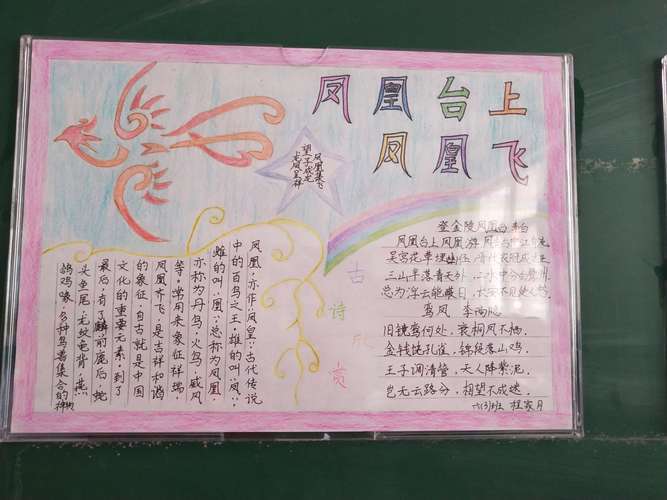 凤凰台上
凤凰飞
凤凰集飞
望子成龙
龙凤呈祥
凤凰,亦作“凤皇”:古代传说
中的百鸟之王。雄的叫“凤”:
雌的叫“凰”:总称为凤凰
亦称为丹鸟、火鸟、威凤
等。常用来象征祥瑞,
凤凰齐飞,是吉祥和谐
的象征,自古就是中国
文化的重要元素,到了
最后,有了麟前鹿后,蛇
头鱼尾,龙纹龟背,燕
鸡喙,多种鸟兽集合的神物
古诗欣赏
登金陵凤凰台 李白
凤凰台上凤凰游,凤去台空江自流
吴宫花草埋幽径,晋代衣冠成古丘
三山半落青天外,二水中分白鹭洲.
总为浮云能蔽日,长安不见使人愁.
鸾凤 李商隐
旧镜鸾何处,衰桐凤不栖.
金钱饶孔雀,锦段落山鸡.
王子调清管,天人降紫泥.
岂无云路分,相望不成迷.
六(3)班